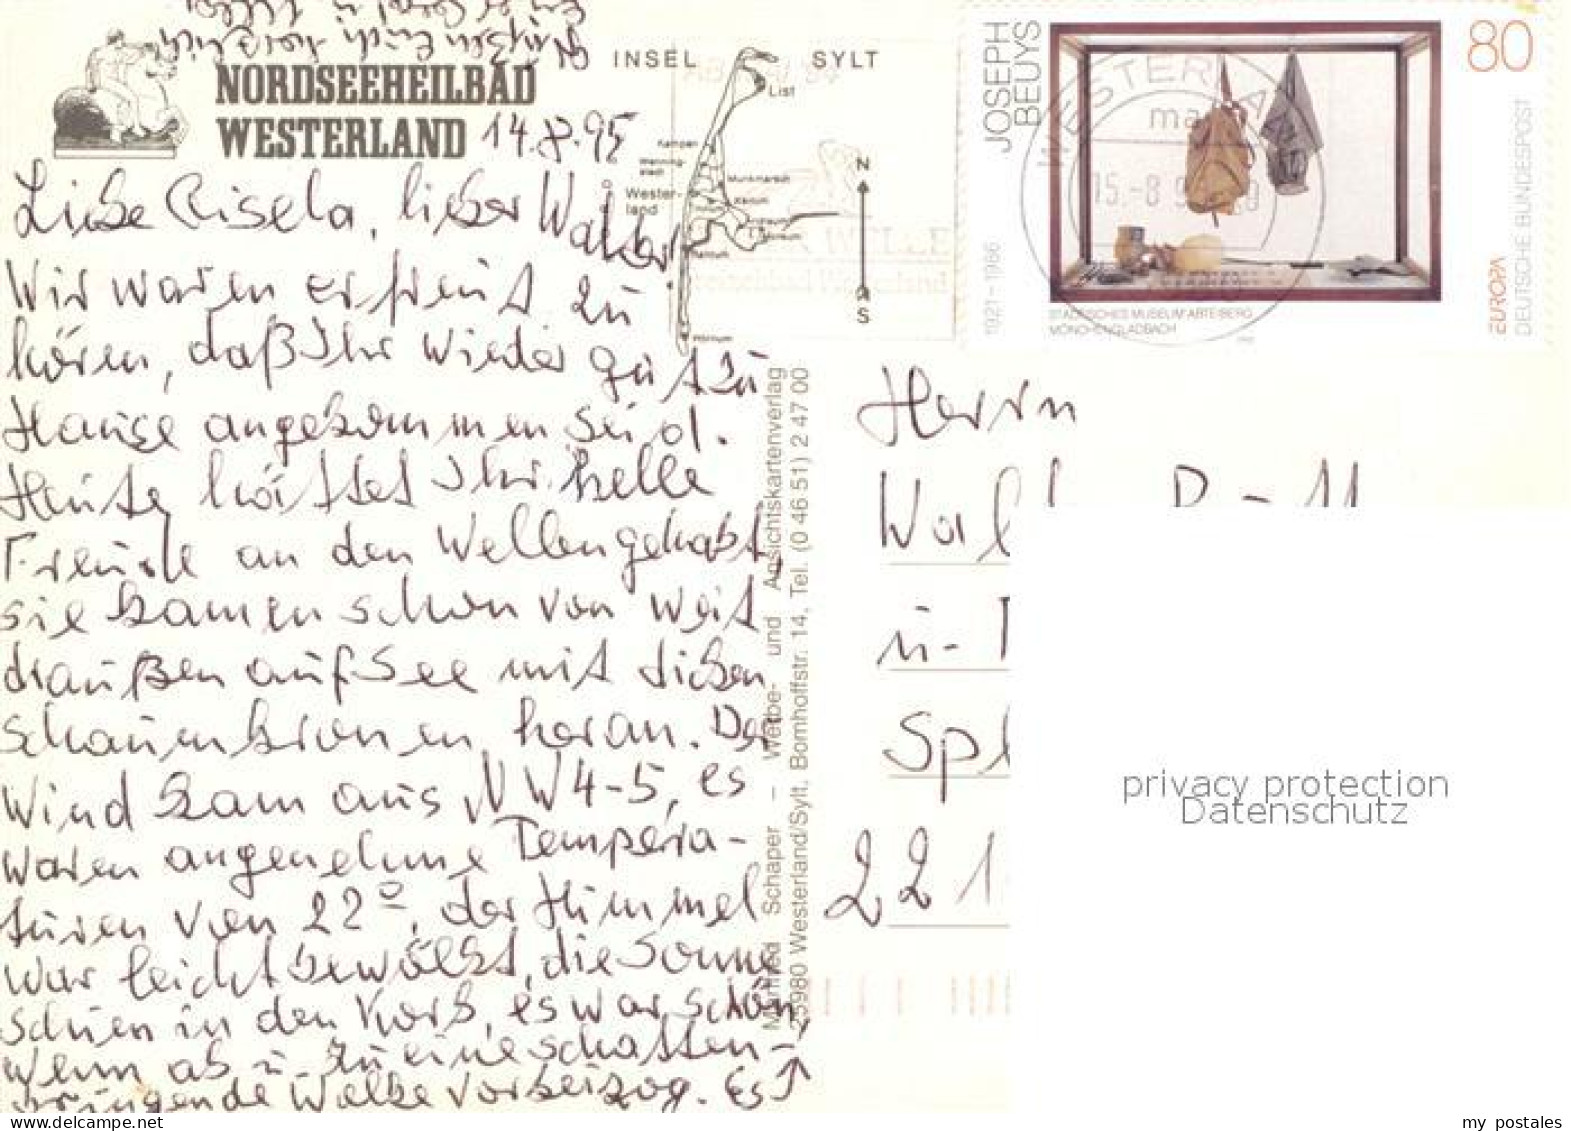 Grüßen Euch herzlich
NORDSEEHEILBAD
WESTERLAND
14.8.95
INSEL SYLT
List
Kampen
Wenning-
stedt
Munkmarsch
Wester-
land
Keitum
Rantum
Hörnum
N
S
Liebe Gisela, lieber Walter
Wir waren erfreut zu
hören, daß Ihr wieder gut zu
Hause angekommen seid.
Heute hättet Ihr helle
Freude an den Wellen gehabt,
sie kamen schon von weit
draußen auf See mit dicken
Schaumkronen heran. Der
Wind kam aus NW 4-5, es
waren angenehme Tempera-
turen von 22°, der Himmel
war leicht bewölkt, die Sonne
schien in den Korb, es war schön,
wenn ab u. zu eine schatten-
bringende Wolke vorbeizog. Es
Manfred Schaper – Werbe- und Ansichtskartenverlag
25980 Westerland/Sylt, Bomhoffstr. 14, Tel. (0 46 51) 2 47 00
JOSEPH
BEUYS
1921–1986
80
WESTERLAND
15.-8.
STÄDTISCHES MUSEUM ABTEIBERG
MÖNCHENGLADBACH
EUROPA
DEUTSCHE BUNDESPOST
WELLE
Westerland
Herrn
Wal
u-
Spl
221
privacy protection
Datenschutz
my_postales